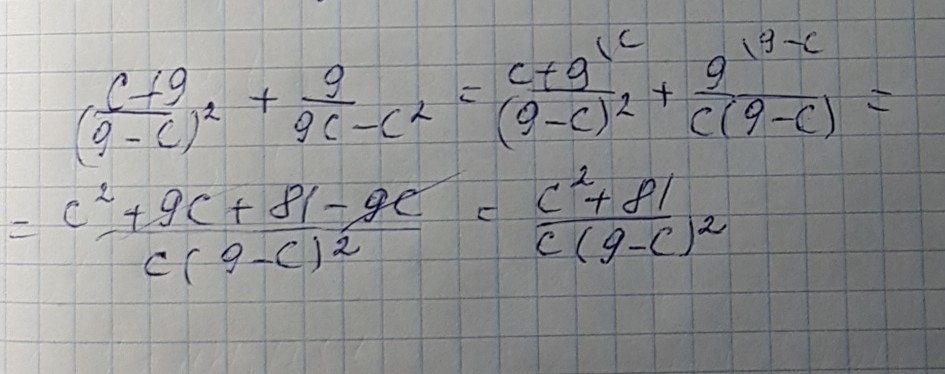 (c+9)/(9-c)² + 9/(9c-c²) = (c+9)\c/(9-c)² + 9\9-c/(c(9-c)) =
= (c²+9c+81-9c)/(c(9-c)²) = (c²+81)/(c(9-c)²)